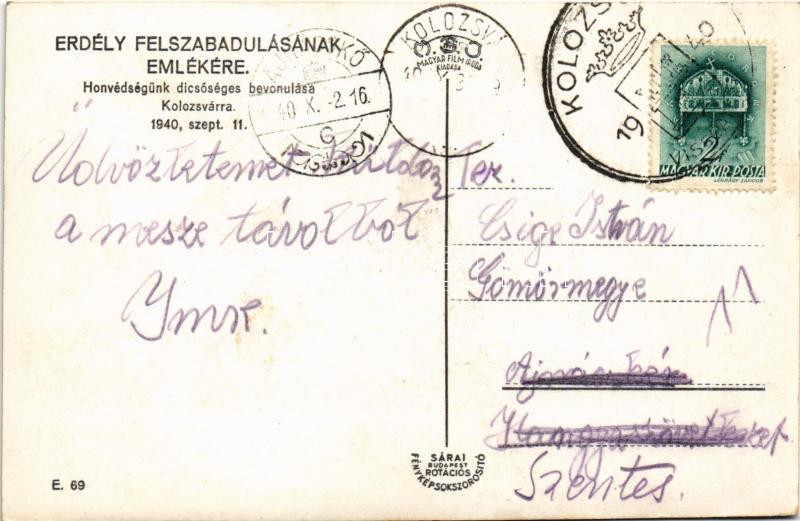 ERDÉLY FELSZABADULÁSÁNAK
EMLÉKÉRE.
Honvédségünk dicsőséges bevonulása
Kolozsvárra.
1940, szept. 11.
KŐ
40 X. -2. 16
KOLOZSV
O.S.O.
MAGYAR FILM IRODA
KIADÁSA
KOLOZS
19 40
VISSZA
2f
MAGYAR KIR. POSTA
LÉGRÁDY SÁNDOR
Üdvözletemet küldöz
a mesze távolból
Ymre.
Ter.
Csige István
Gömörmegye
Szentes.
SÁRAI
BUDAPEST
ROTÁCIÓS
FÉNYKÉPSOKSZOROSÍTÓ
E. 69